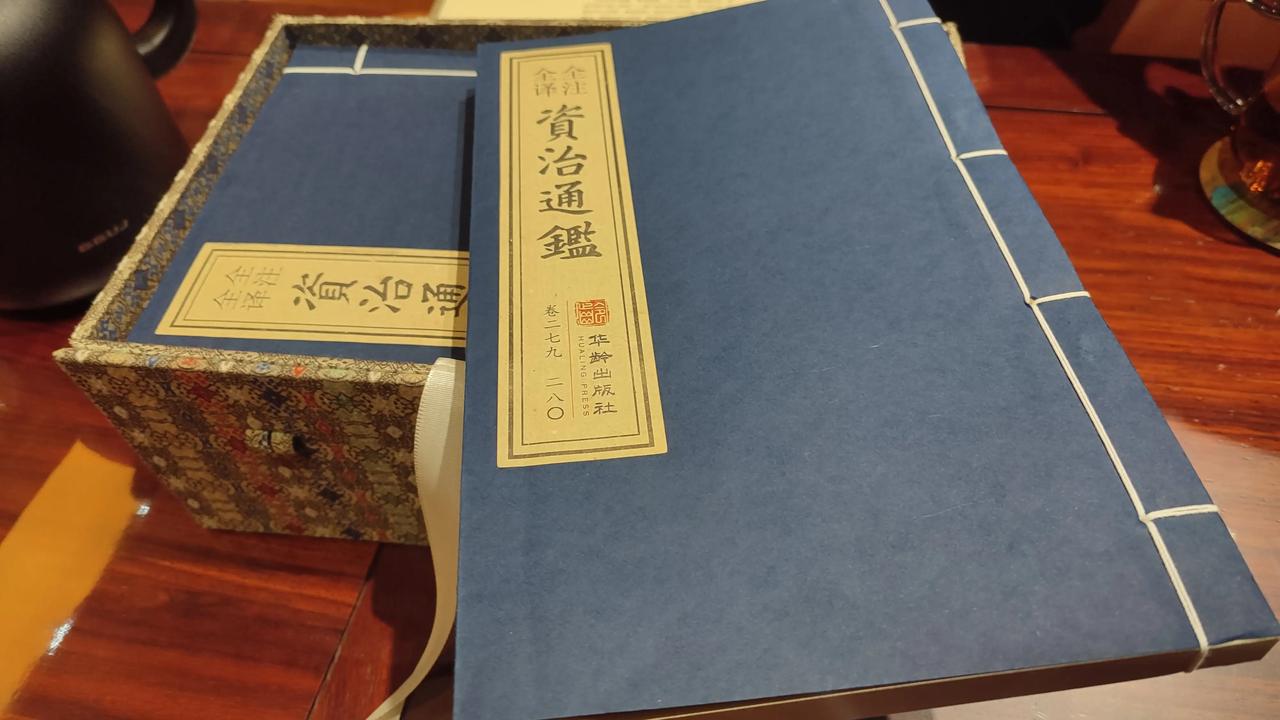 全注
全译
資治通鑑
卷二七九 二八〇
华龄出版社
HUALING PRESS
全注
全译
資治通